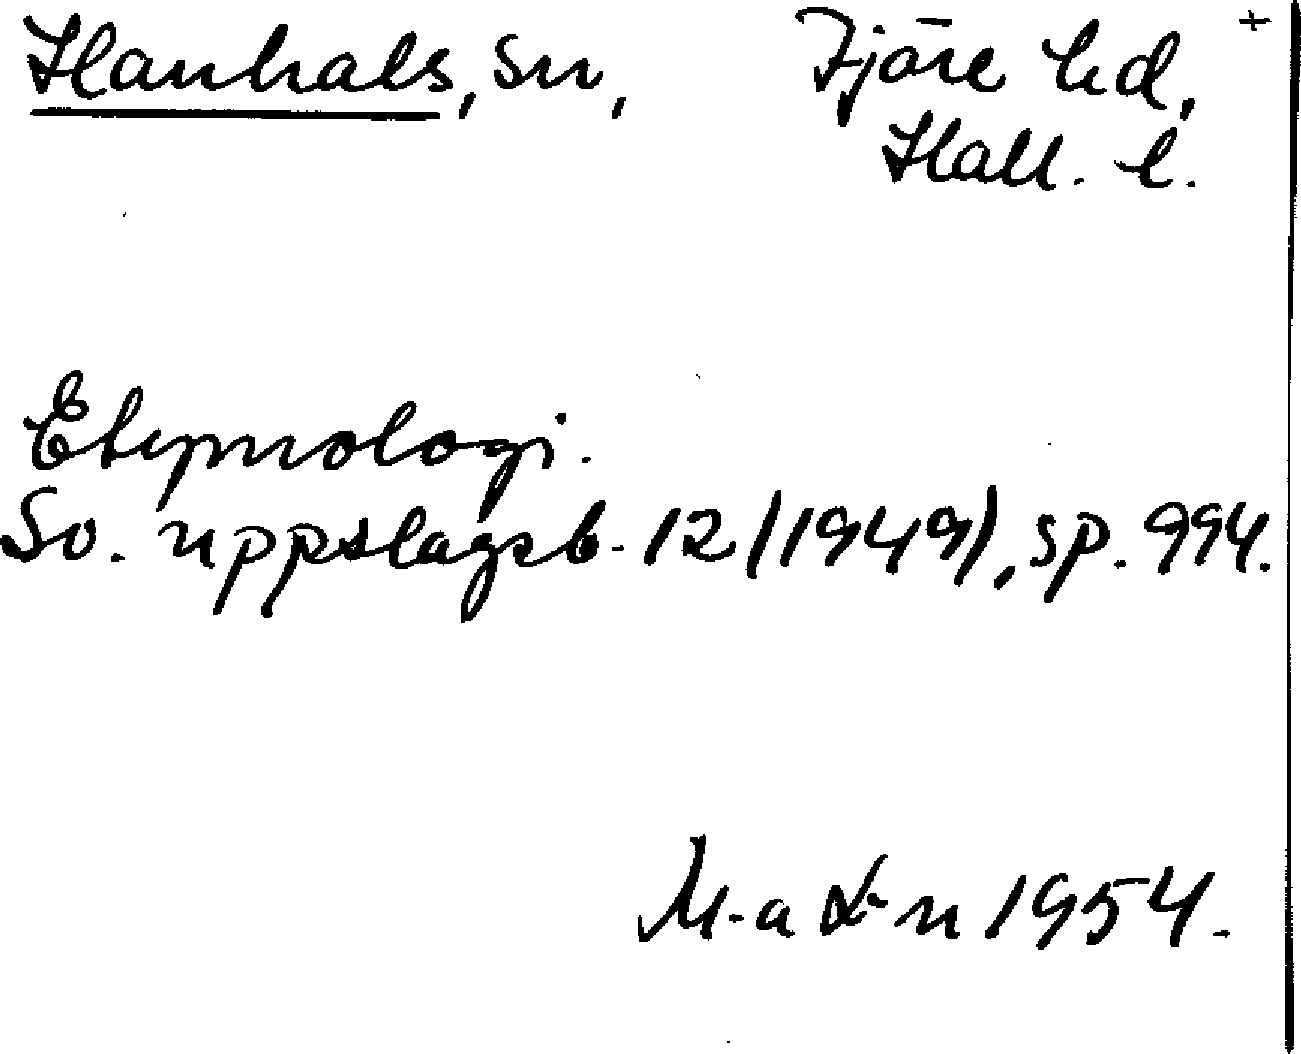 Hanhals, sn, Fjäre hd, +
Hall. l.
Etymologi.
Sv. uppslagsb. 12 (1949), sp. 994.
M-a L-n 1954.